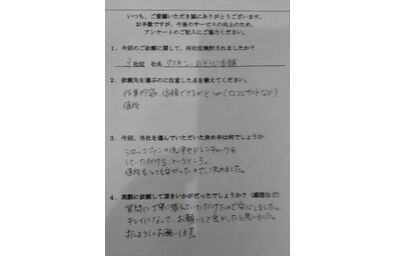 いつも、ご愛顧いただき誠にありがとうございます。
お手数ですが、今後のサービスの向上のため、
アンケートのご記入にご協力ください。
1．今回のご依頼に関して、何社位検討されましたか？
3社位 社名 ダスキン・おそうじ本舗
2．依頼先を選ぶのに注意した点を教えてください。
作業内容、信頼できるかどうか（口コミサイトなど）
値段
3．今回、当社を選んでいただいた決め手は何でしょうか
シロッコファンの洗浄やドレンチェックを
していただける というところ。
値段も だったので、決めました。
4．実際に依頼して頂きいかがだったでしょうか？（感想など）
質問に丁寧に答えていただけたので安心しました。
キレイになって、お願いして良かったと思いました。
またよろしくお願いします。